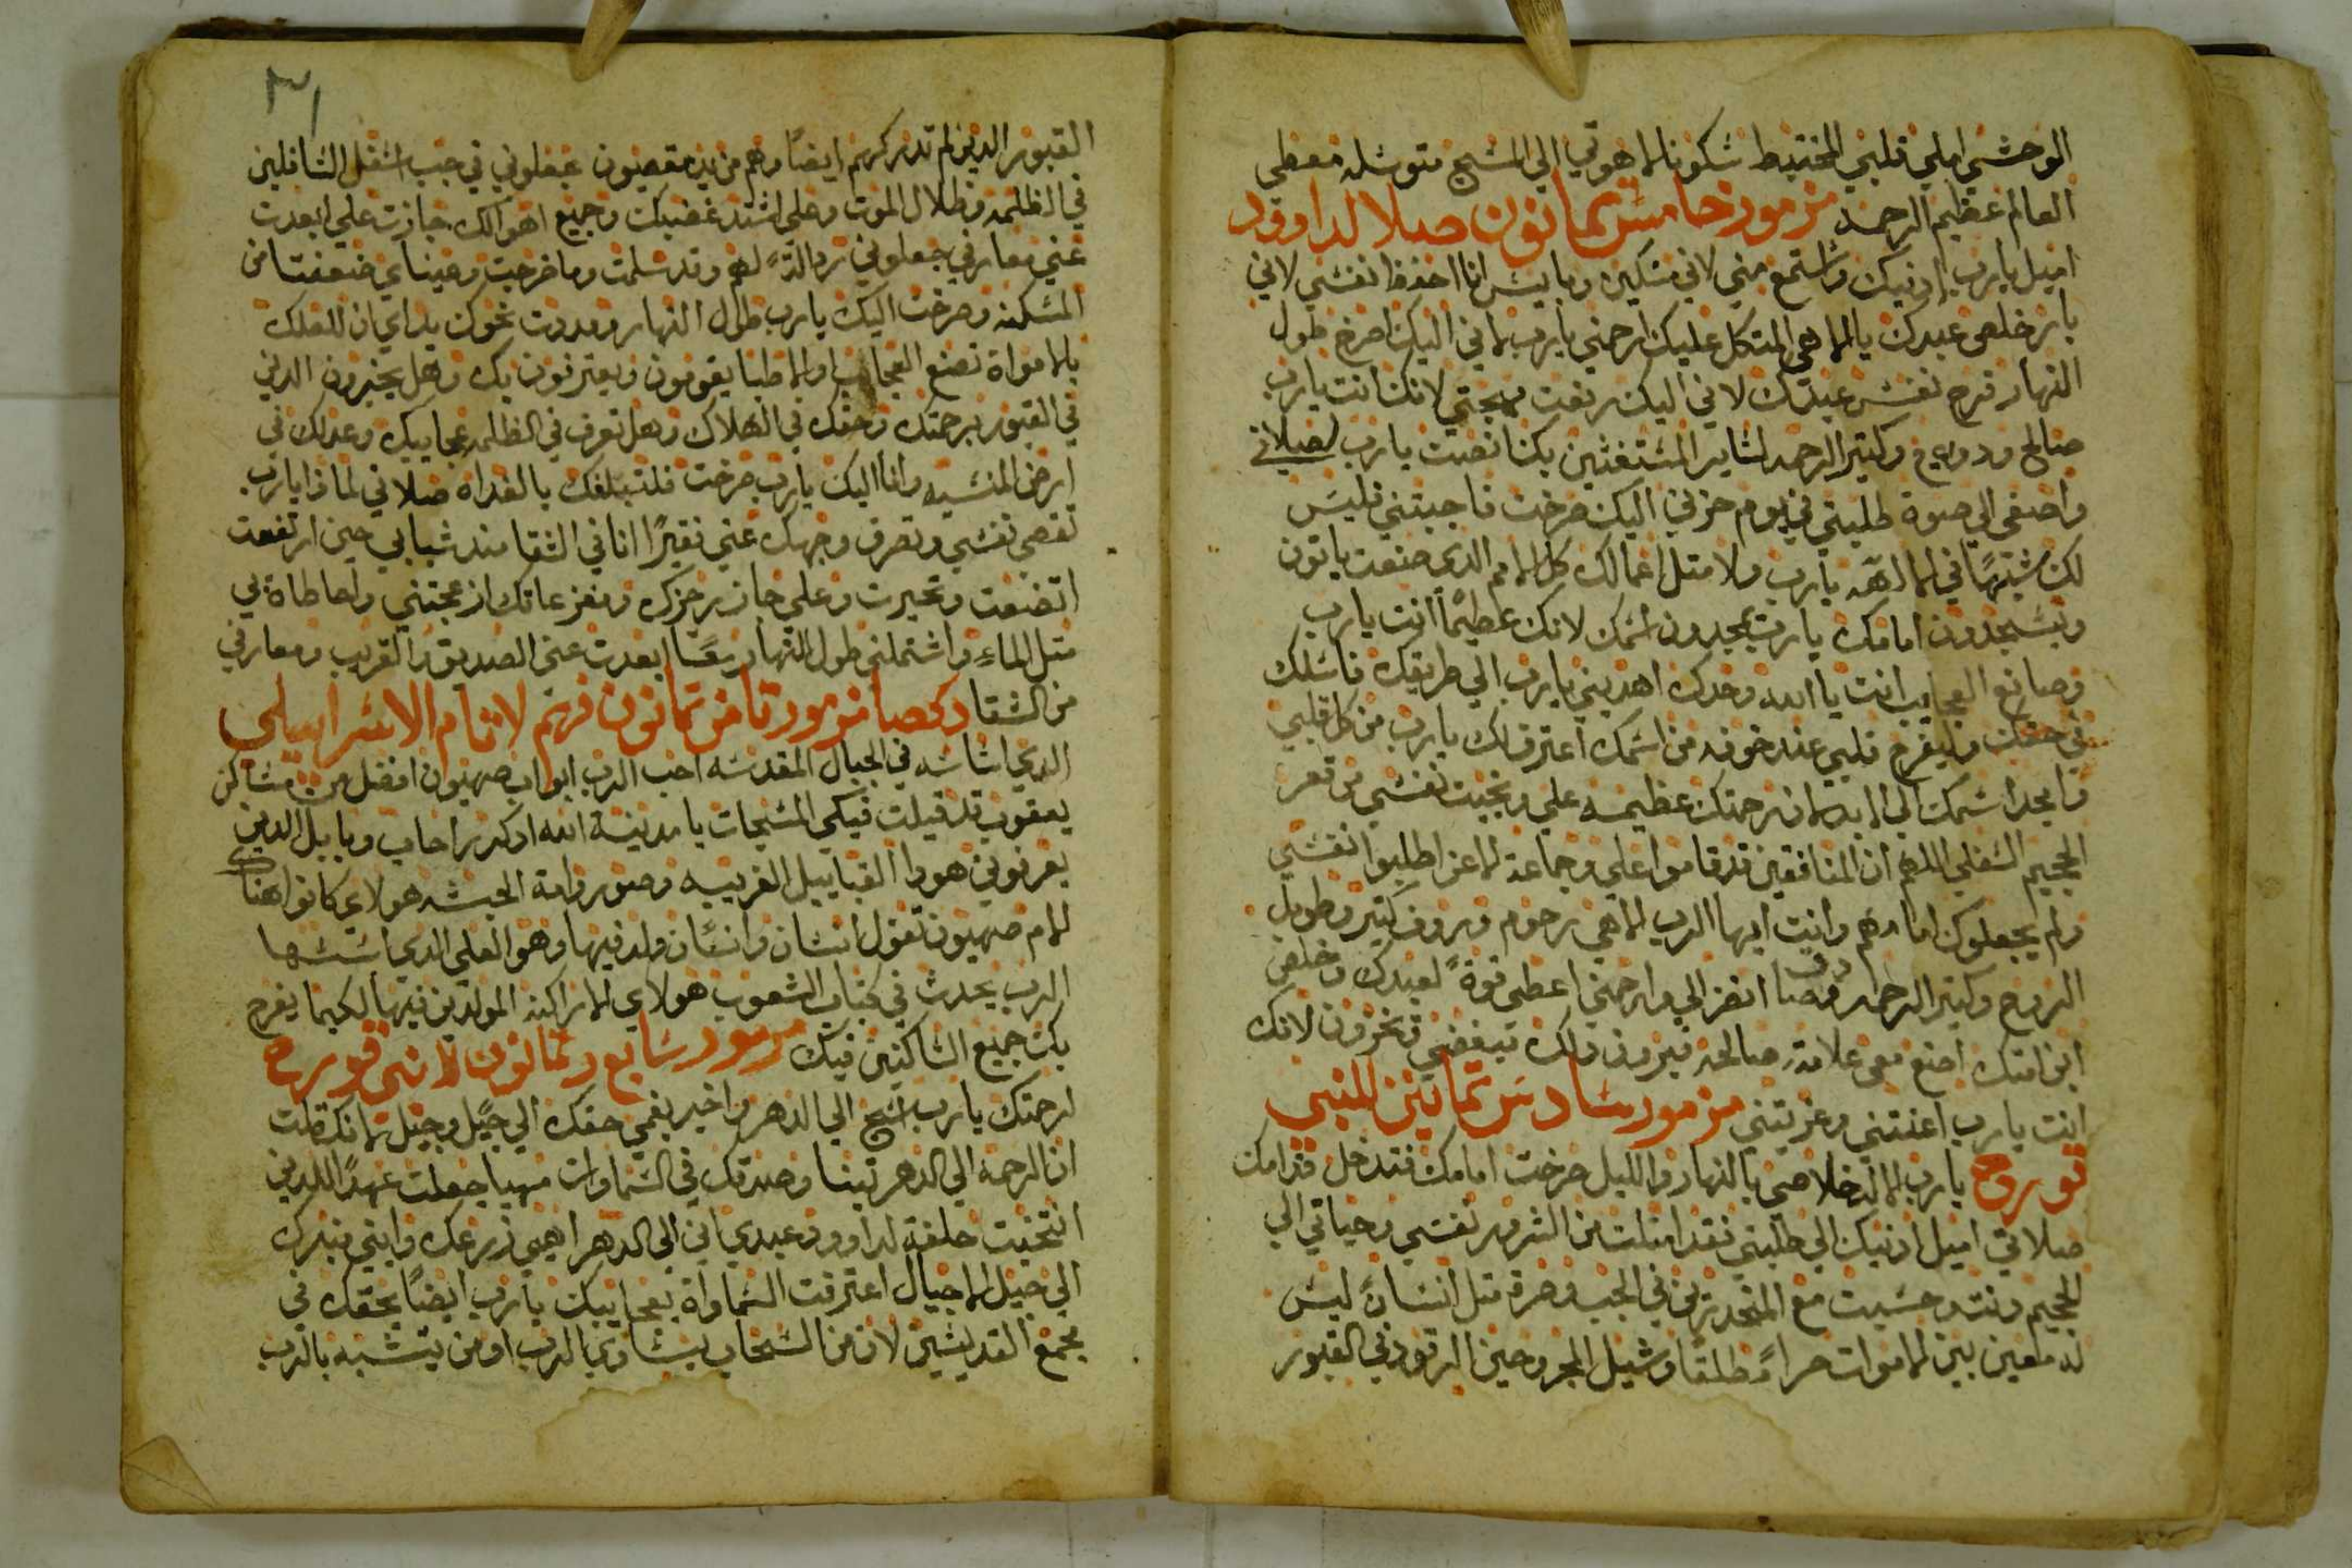 الوحشي املي قلبي المختبط سكونا الاهوتي الي المسيح متوسله معطي
العالم عظيم الرحمه مزمور خامس تمانون صلاه لداوود
اميل يا رب ادنيك واستمع مني لاني مسكين وبايس انا احفظ نفسي لاني
بار خلص عبدك يا الاهي المتكل عليك ارحمني يا رب لاني اليك اصرخ طول
النهار فرح نفس عبدك لاني اليك رفعت مهجتي لانك انت يا رب
صالح ووديع وكتير الرحمه لساير المستغتين بك انصت يا رب لصلاتي
واصغي الي صوة طلبتي في يوم حزني اليك صرخت فاجبتني فليس
لك شبيهًا في الالهه يا رب ولا متل اعمالك كل الامم الدي صنعت ياتون
ويسجدون امامك يا رب يمجدون اسمك لانك عظيمًا انت يا رب
وصانع العجايب انت يا الله وحدك اهديني يا رب الي طريقك فاسلك
في حقك وليفرح قلبي عند خوفه من اسمك اعترف لك يا رب من كل قلبي
وامجد اسمك الي الابد لان رحمتك عظيمه علي ونجيت نفسي من قعر
الجحيم السفلي اللهم ان المنافقين قد قاموا علي وجماعة الاعزا طلبوا نفسي
ولم يجعلوك امامهم وانت ايها الرب الاهي رحوم وروف كتير وطويل
الروح وكتير الرحمه وصادق انظر الي وارحمني اعطي قوةً لعبدك وخلص
ابن امتك اصنع معي علامة صالحه فيرون دلك مبغضي فيخزون لانك
انت يا رب اعنتني وعزيتني مزمور سادس تمانين لابني
قورح يا رب الاه خلاصي بالنهار والليل صرخت امامك فتدخل قدامك
صلاتي اميل ادنيك الي طلبتي فقد امتلت من الشرور نفسي وحياتي الي
الجحيم دنت وحسبت مع المنحدرين في الجب وصرة متل انسانً ليس
له معين بين الاموات حراً مطلقًا وشبل المجروحين الرقود في القبور
القبور الدين لم تدكرهم ايضًا وهم من يدك مقصيون جعلوني في جب اسفل السافلين
في الظلمه وظلال الموت وعلي اشتد غضبك وجميع اهوالك جازت علي ابعدت
عني معارفي جعلوني رداله لهم وقد سلمت وما خرجت وعيناي ضعفتا من
المسكنه وصرخت اليك يا رب طول النهار ومددت نحوك يداي ان لعلك
بالامواة تصنع العجايب او الاطبا يقومون ويعترفون بك وهل يخبرون الدين
في القبور برحمتك وحقك في الهلاك وهل تعرف في الظلمه عجايبك وعدلك في
ارض المنسيه وانا اليك يا رب صرخت فلتبلغك بالغداه صلاتي لمادا يا رب
تقصي نفسي وتصرف وجهك عني فقيرًا انا في الشقا مند شبابي حين ارتفعت
اتضعت وتحيرت وعلي جاز رجزك ومفزعاتك ازعجتني واحاطاة بي
متل الماءِ واشتملتني طول النهار معًا ابعدت عني الصديق والقريب ومعارفي
من الشقا دكصا مزمور تامن تمانون فهم لاتام الاسراييلي
الدي اساسه في الجبال المقدسه احب الرب ابواب صهيون افضل من مساكن
يعقوب قد قيلت فيكي المسبحات يا مدينة الله ادكر راحاب وبابل الدين
يعرفوني هودا القبايل الغريبه وصور وامة الحبشه هولاي كانوا هناك
الام صهيون تقول انسان وانسان ولد فيها وهو العلي الدي اسسها
الرب يحدث في كتاب الشعوب هولاي الاراكنه المولودين فيها لكيما يفرح
بك جميع الساكنين فيك مزمور سابع وتمانون لابني قورح
لرحمتك يا رب اسبح الي الدهر واخبر بفمي حقك الي جيل وجيل لانك قلت
ان الرحمه الي الدهر تبنا وصدقك في السماوات مهيا جعلت عهدًا للدين
انتخبت حلفة لداوود عبدي اني الي الدهر اهيي زرعك وابني منبرك
الي جيل الاجيال اعترفت السماواة بعجايبك يا رب ايضًا بحقك في
مجمع القديسين لان من السحاب يساوي الرب او من يتشبه بالرب